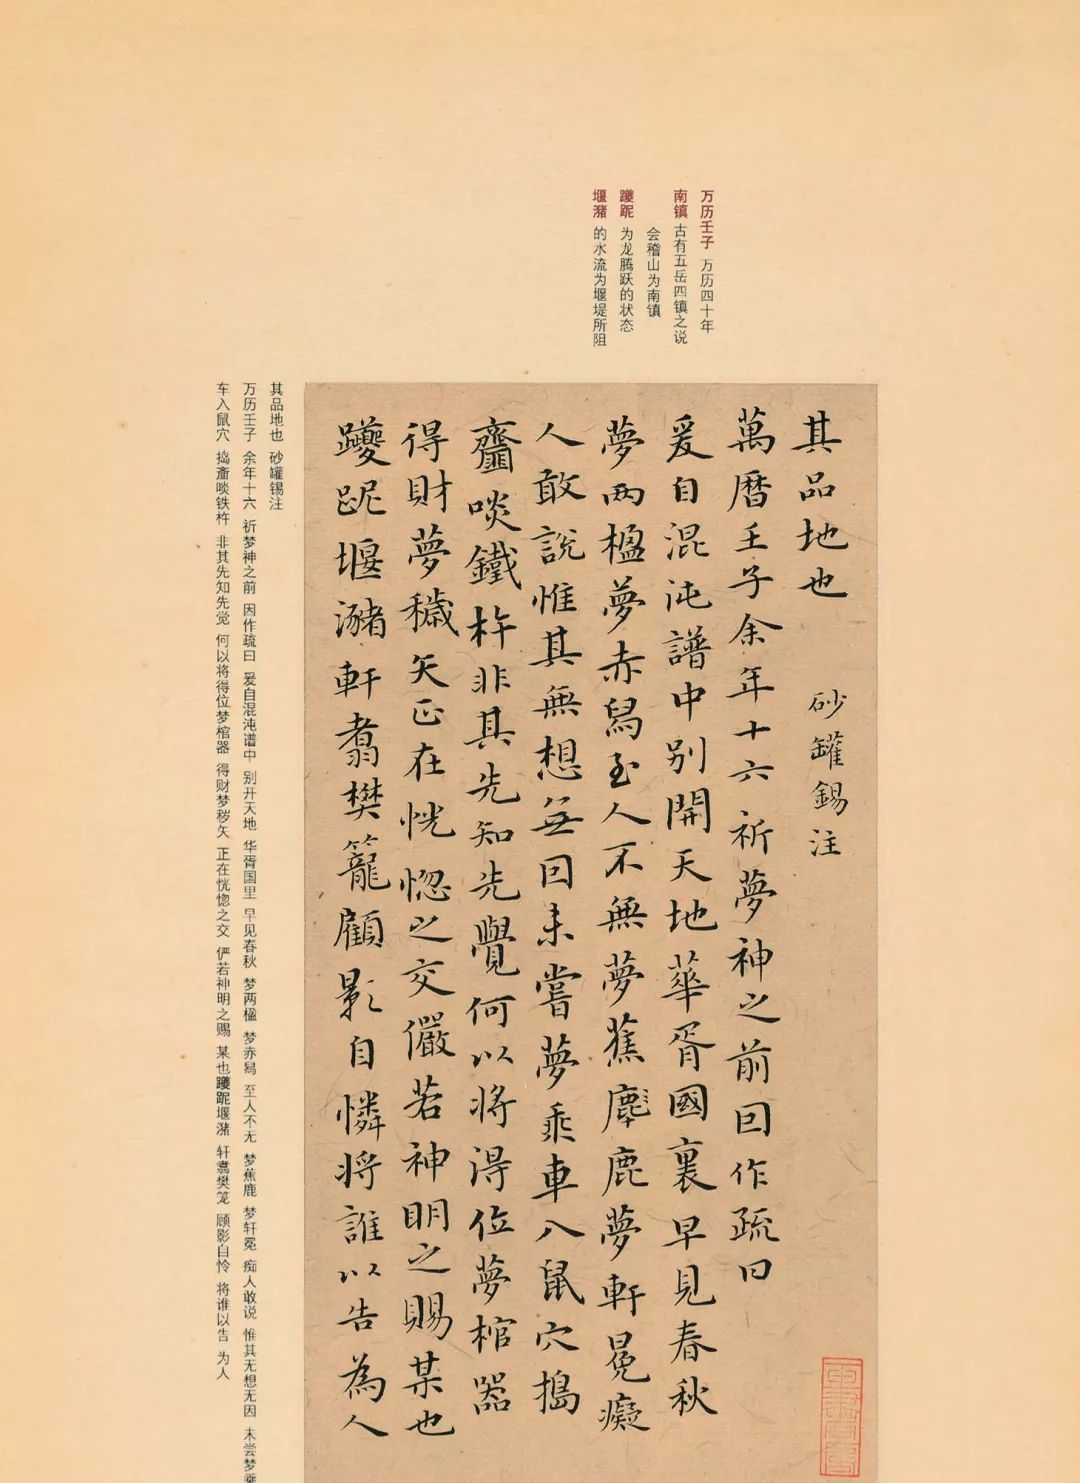 万历壬子 万历四十年
南镇 古有五岳四镇之说
会稽山为南镇
躨跜 为龙腾跃的状态
堰潴 的水流为堰堤所阻
其品地也 砂罐锡注
萬曆壬子余年十六祈夢神之前因作疏曰
爰自混沌譜中别開天地華胥國裏早見春秋
夢兩楹夢赤舄至人不無夢蕉鹿夢軒冕癡
人敢說惟其無想無因未嘗夢乘車入鼠穴搗
齏啖鐵杵非其先知先覺何以將得位夢棺器
得財夢穢矢正在恍惚之交儼若神明之賜某也
躨跜堰瀦軒翥樊籠顧影自憐將誰以告為人
其品地也 砂罐锡注
万历壬子 余年十六 祈梦神之前 因作疏曰 爰自混沌谱中 别开天地 华胥国里 早见春秋 梦两楹 梦赤舄 至人不无 梦蕉鹿 梦轩冕 痴人敢说 惟其无想无因 未尝梦乘
车入鼠穴 捣齑啖铁杵 非其先知先觉 何以将得位梦棺器 得财梦秽矢 正在恍惚之交 俨若神明之赐 某也躨跜堰潴 轩翥樊笼 顾影自怜 将谁以告 为人